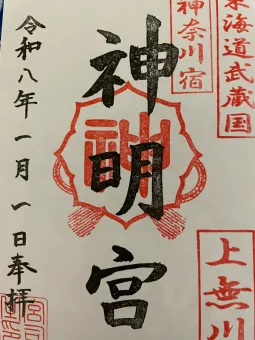 東海道武蔵国
神奈川宿
上無川
神明宮
令和八年一月一日奉拝